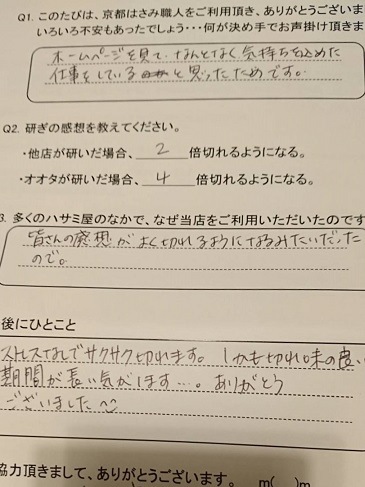 Q1. このたびは、京都はさみ職人をご利用頂き、ありがとうございま
いろいろ不安もあったでしょう・・・何が決め手でお声掛け頂きま
ホームページを見て、なんとなく気持ちを込めた
仕事をしている と思ったためです。
Q2. 研ぎの感想を教えてください。
・他店が研いだ場合、 2 倍切れるようになる。
・オオタが研いだ場合、 4 倍切れるようになる。
3. 多くのハサミ屋のなかで、なぜ当店をご利用いただいたのです
皆さんの発想がよく切れるようになるみたいだった
ので。
後にひとこと
ストレスなしでサクサク切れます。しかも切れ味の良い
期間が長い気がします…。ありがとう
ございました
協力頂きまして、ありがとうございます。 m( )m